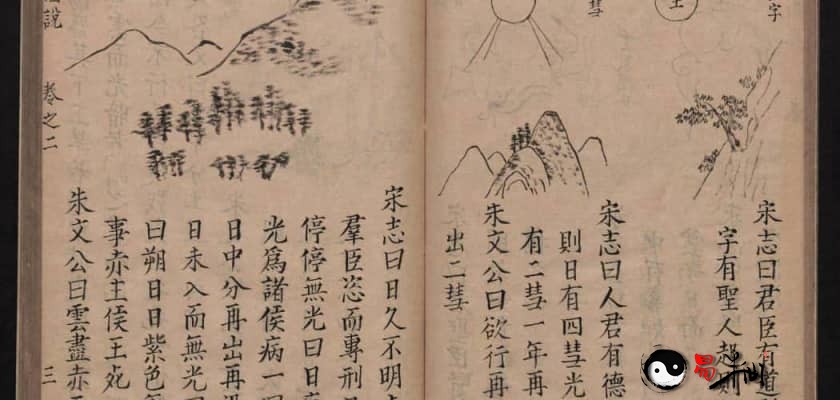 字
彗
宋志曰君臣有道
字有聖人起則
宋志曰人君有德
則日有四彗光
有二彗一年再
朱文公曰欲行再
出二彗
宋志曰日久不明
羣臣恣而專刑
停停無光曰日
光爲諸侯病一
日中分再出再
日未入而無光
曰朔日日紫色
事赤主侯王死
朱文公曰雲盡赤
說
卷之二
三
易